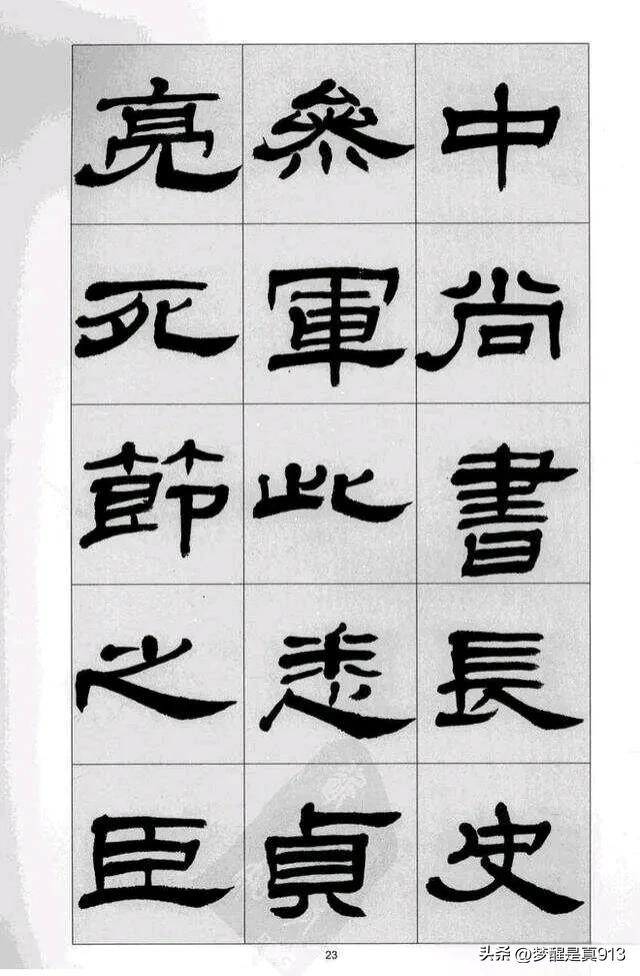 中尚書長史
參軍此悉貞
亮死節之臣
23
头条 @梦醒是真913